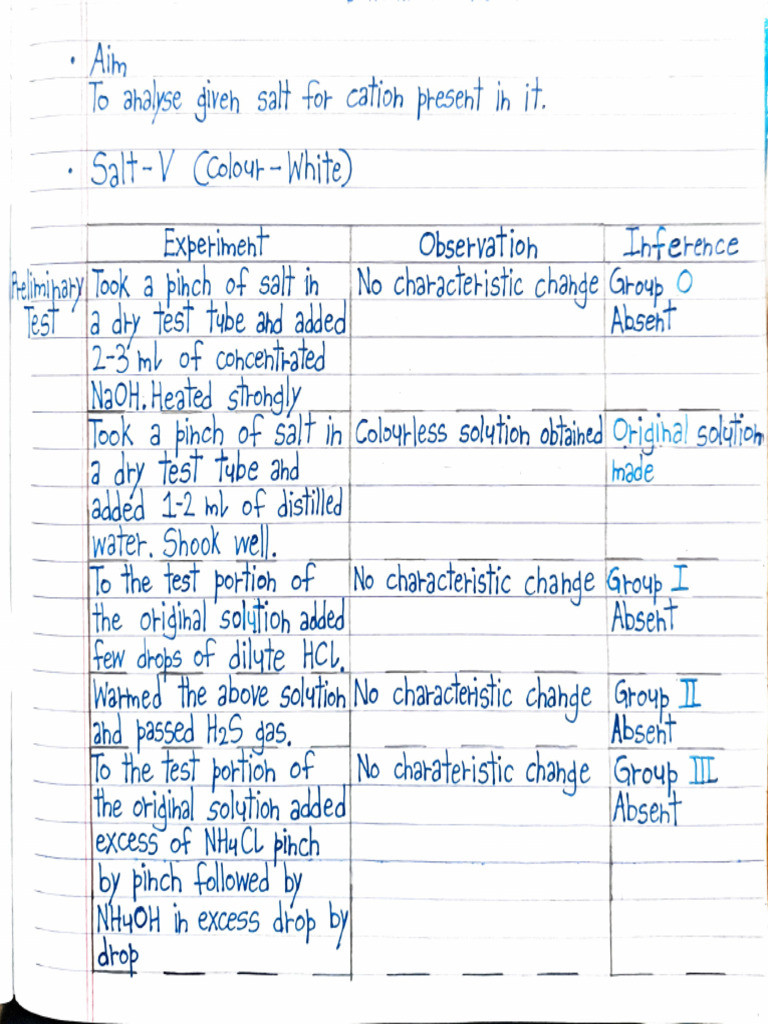 • Aim
To analyse given salt for cation present in it.
• Salt-V (Colour-White)
Experiment Observation Inference
Preliminary Test
Took a pinch of salt in
a dry test tube and added
2-3 ml of concentrated
NaOH. Heated strongly
No characteristic change
Group O
Absent
Took a pinch of salt in
a dry test tube and
added 1-2 ml of distilled
water. Shook well.
Colourless solution obtained
Original solution
made
To the test portion of
the original solution added
few drops of dilute HCl.
No characteristic change
Group I
Absent
Warmed the above solution
and passed H2S gas.
No characteristic change
Group II
Absent
To the test portion of
the original solution added
excess of NH4Cl pinch
by pinch followed by
NH4OH in excess drop by
drop
No charateristic change
Group III
Absent